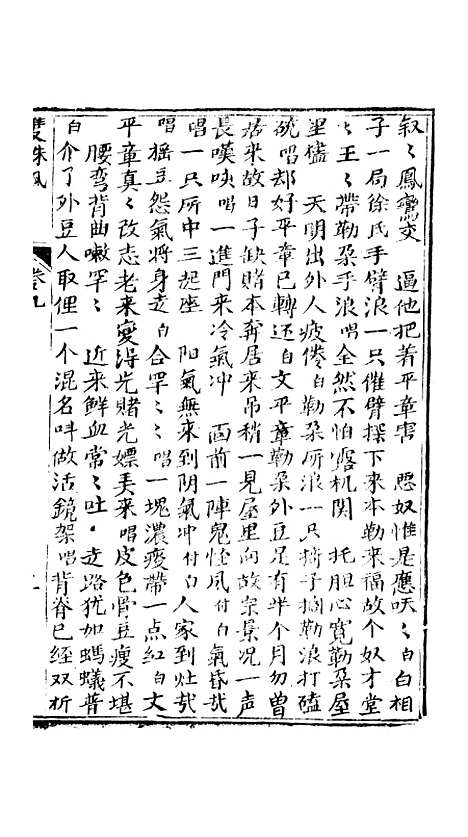 叙〻鳳鸞交　逼他把著平章害　惡奴惟是應〻白白相
子一局徐氏手臂浪一只催臂探下來本勒來福故个奴才堂
〻王〻帶勒朶乎浪唱全然不怕露机関　托胆心寛勒朶屋
里榼　天明出外人疲倦白勒朶所浪一只擠子搁勒浪打磕
唱却好平章已轉还白文平章勒朶外豆足有半个月勿曽
居來故日子缺賭本奔居來吊稍一見屋里向故宗景况一声
長嘆唤唱一進門來冷氣冲　靣前一陣鬼怪風付白氣昏哉
唱一只所中三起座　阳氣無來到阴氣冲付白人家到灶哉
唱摇豆怨氣將身走白合罕〻〻唱一塊濃痰帶一点紅白文
平章真〻改志老來變淂光賭光嫖美來唱皮色骨豆瘦不堪
腰弯背曲嗽罕〻　近來鮮血常〻吐．走路犹如螞蟻普
白介了外豆人取俚一个混名呌做活鏡架唱背脊已経双折
雙珠鳳
卷九